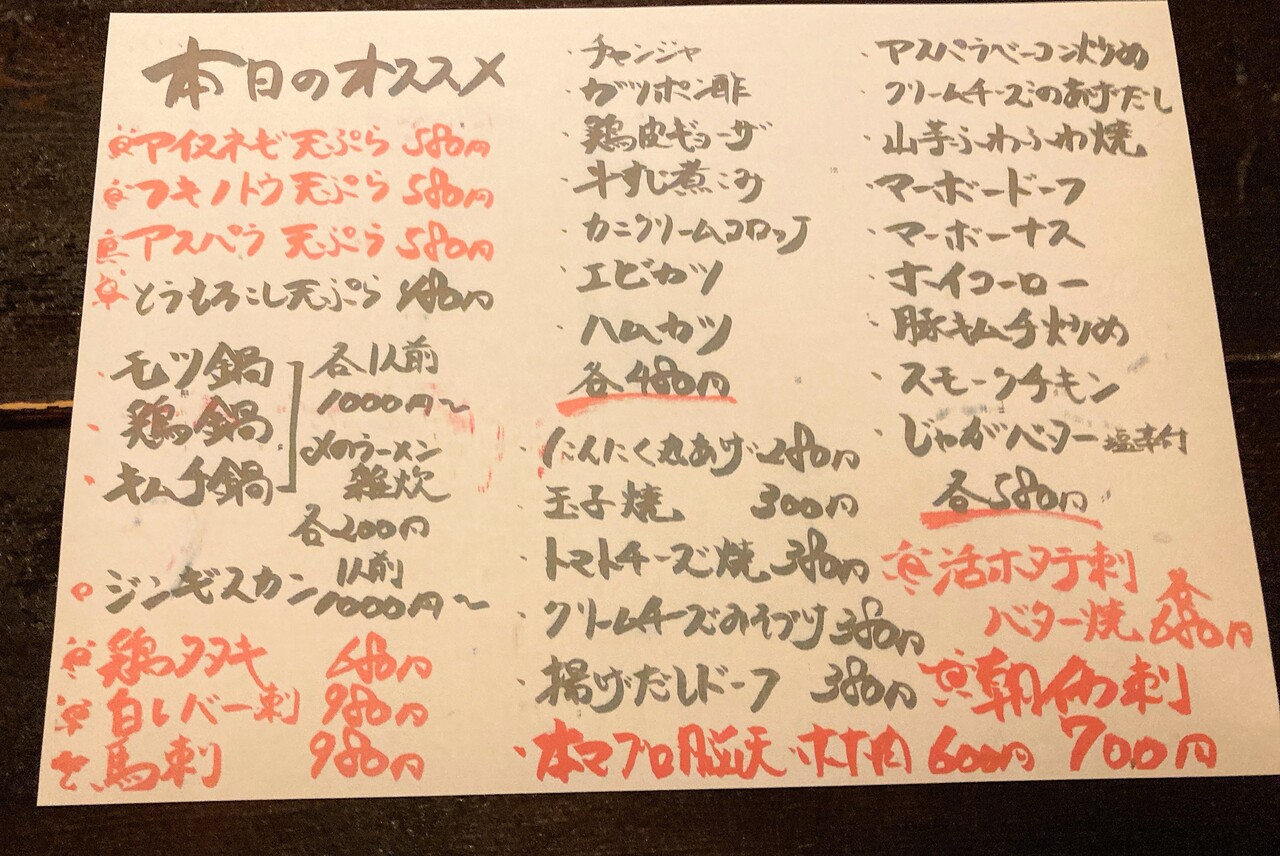 本日のオススメ
アイヌネギ天ぷら 580円
フキノトウ天ぷら 580円
アスパラ天ぷら 580円
とうもろこし天ぷら 480円
・モツ鍋
・鶏鍋
・キムチ鍋
各1人前
1000円〜
〆のラーメン
雑炊
各200円
ジンギスカン 1人前
1000円〜
鶏タタキ 680円
白レバー刺 980円
馬刺 980円
・チャンジャ
・ガツポン酢
・鶏皮ギョーザ
・牛すじ煮こみ
・カニクリームコロッケ
・エビカツ
・ハムカツ
各480円
・にんにく丸あげ 280円
・玉子焼 300円
・トマトチーズ焼 380円
・クリームチーズみそづけ 380円
・揚げだしドーフ 380円
・本マグロ脳天・ホホ肉 600円
・アスパラベーコン炒め
・クリームチーズのあげだし
・山芋ふわふわ焼
・マーボードーフ
・マーボーナス
・ホイコーロー
・豚キムチ炒め
・スモークチキン
・じゃがバター 塩辛付
各580円
活ホタテ刺
バター焼 各680円
朝イカ刺
700円